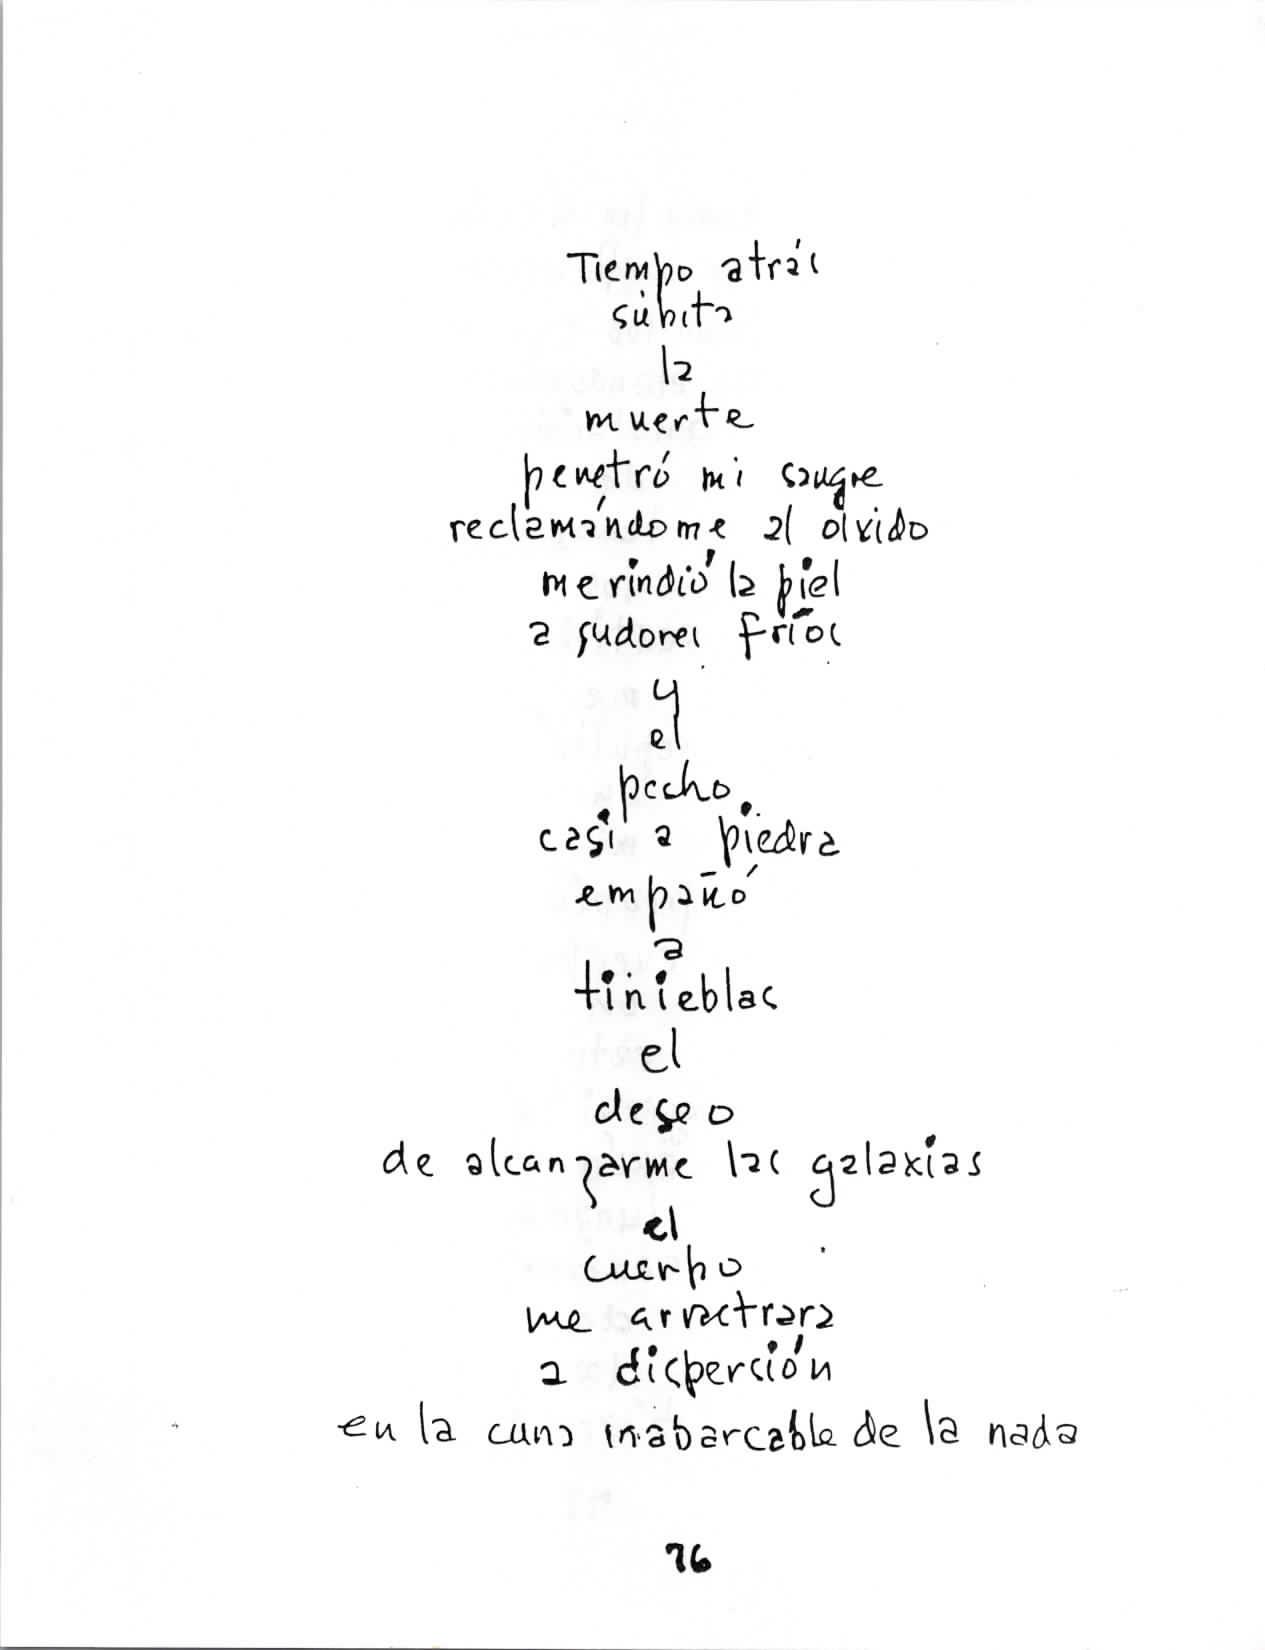 Tiempo atrás
súbita
la
muerte
penetró mi sangre
reclamándome al olvido
me rindió la piel
a sudores fríos
y
el
pecho
casi a piedra
empañó
a
tinieblas
el
deseo
de alcanzarme las galaxias
el
cuerpo
me arrastrara
a dispersión
en la cuna inabarcable de la nada
76